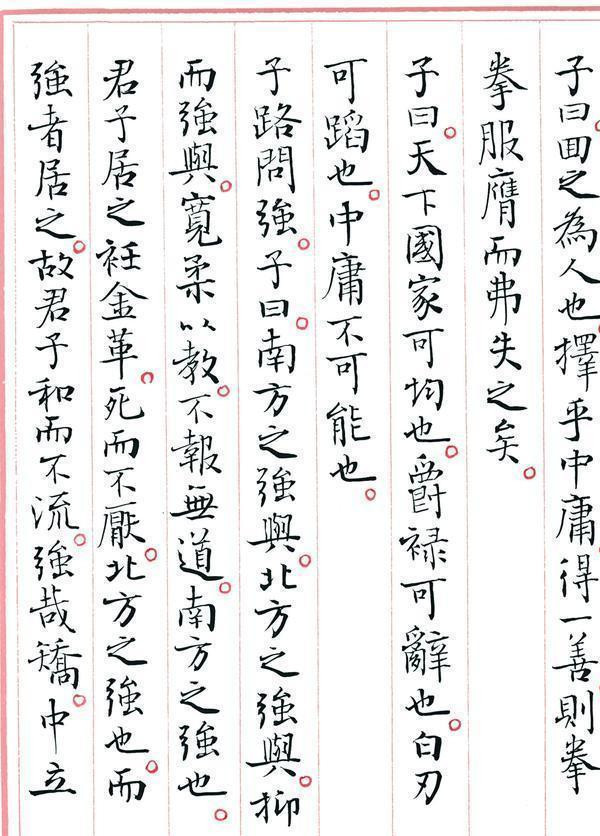 子曰。回之為人也。擇乎中庸得一善則拳
拳服膺而弗失之矣。
子曰。天下國家可均也。爵祿可辭也。白刃
可蹈也。中庸不可能也。
子路問強。子曰。南方之強與。北方之強與。抑
而強與。寬柔以教。不報無道。南方之強也。
君子居之衽金革。死而不厭。北方之強也。而
強者居之。故君子和而不流。強哉矯。中立